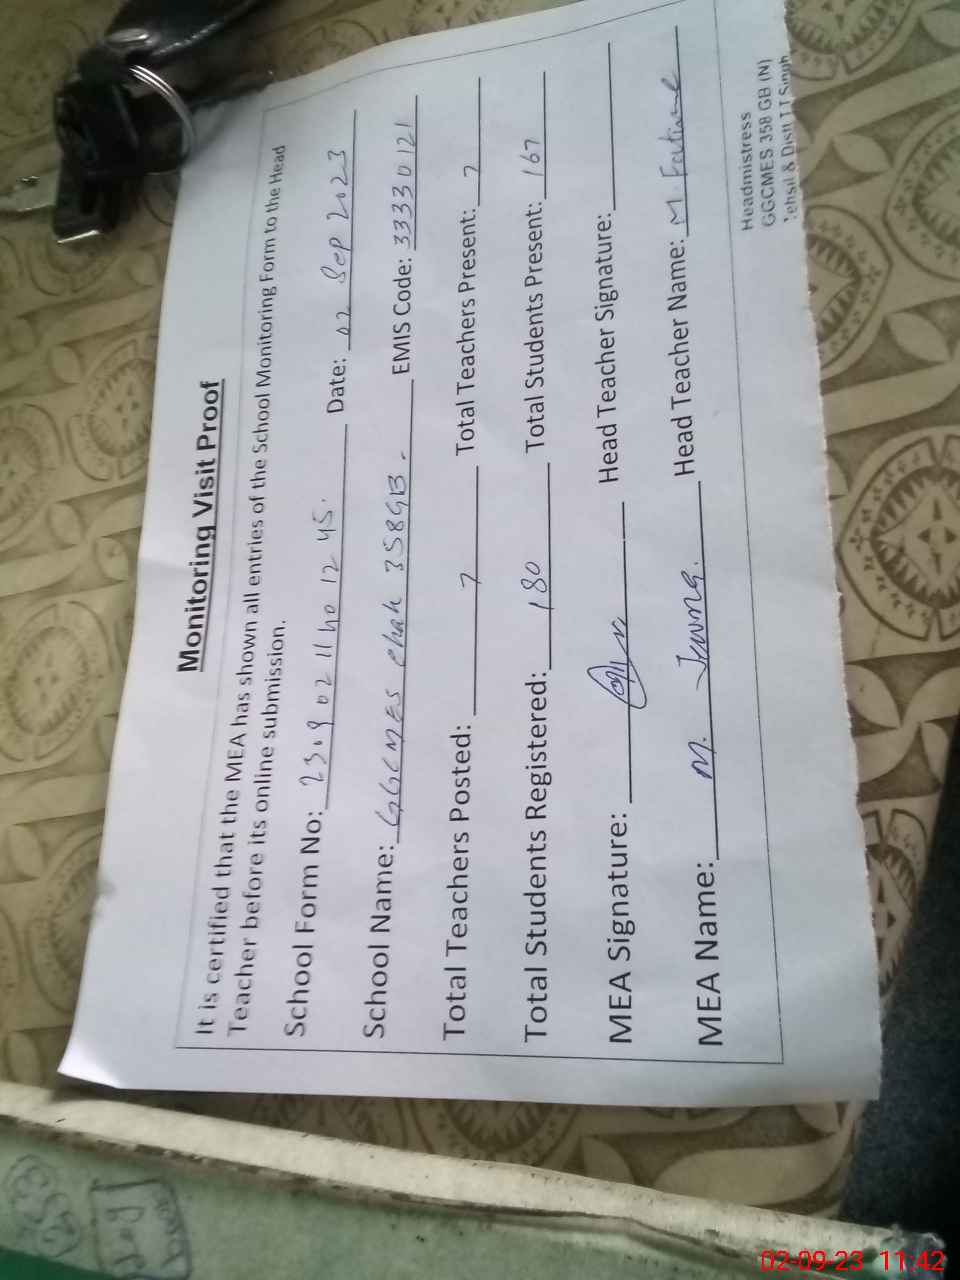 Monitoring Visit Proof
It is certified that the MEA has shown all entries of the School Monitoring Form to the Head
Teacher before its online submission.
School Form No: 2309 02 1140 12 45. Date: 02 Sep 2023
School Name: GGCMES Chak 358GB. EMIS Code: 33330121
Total Teachers Posted: 7 Total Teachers Present: 7
Total Students Registered: 180 Total Students Present: 167
MEA Signature: Head Teacher Signature:
MEA Name: M. Head Teacher Name: M.
Headmistress
GGCMES 358 GB (N)
Tehsil & Distt T.T Singh
02-09-23 11:42